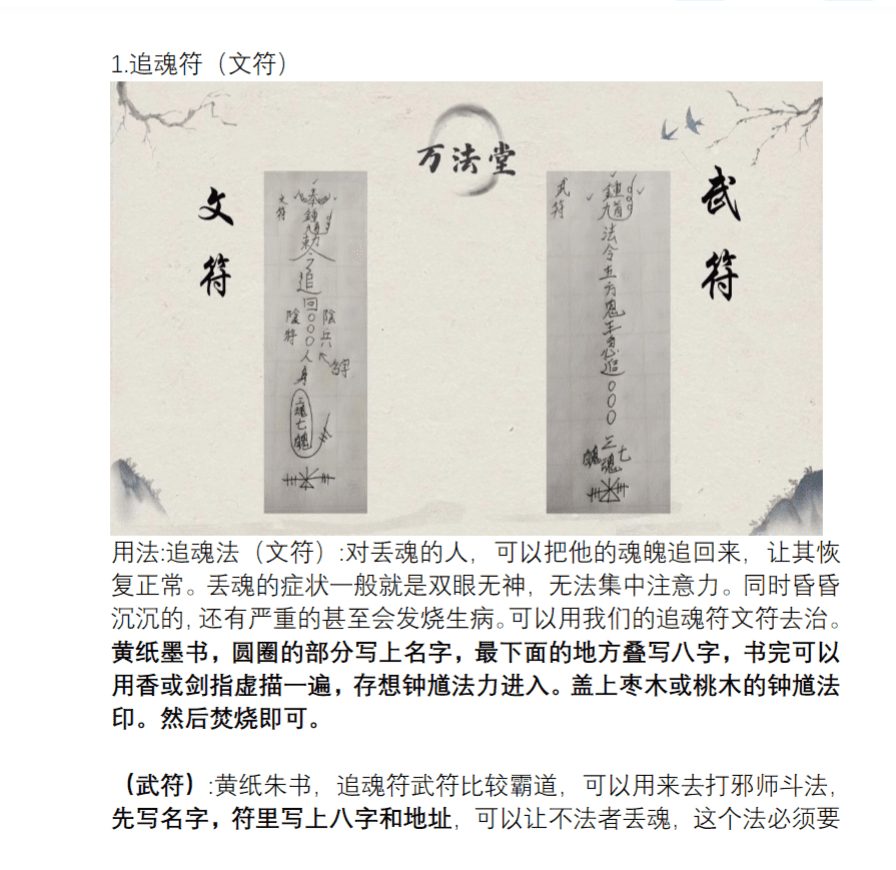 1.追魂符（文符）
万法堂
文符
武符
文符
奉鍾馗勅令追回○○○人身
陰符
陰兵
三魂七魄
武符
鍾馗法令
○○○
三魂七魄
用法:追魂法（文符）:对丢魂的人，可以把他的魂魄追回来，让其恢
复正常。丢魂的症状一般就是双眼无神，无法集中注意力。同时昏昏
沉沉的, 还有严重的甚至会发烧生病。可以用我们的追魂符文符去治。
黄纸墨书，圆圈的部分写上名字，最下面的地方叠写八字，书完可以
用香或剑指虚描一遍，存想钟馗法力进入。盖上枣木或桃木的钟馗法
印。然后焚烧即可。
（武符）:黄纸朱书，追魂符武符比较霸道，可以用来去打邪师斗法，
先写名字，符里写上八字和地址，可以让不法者丢魂，这个法必须要